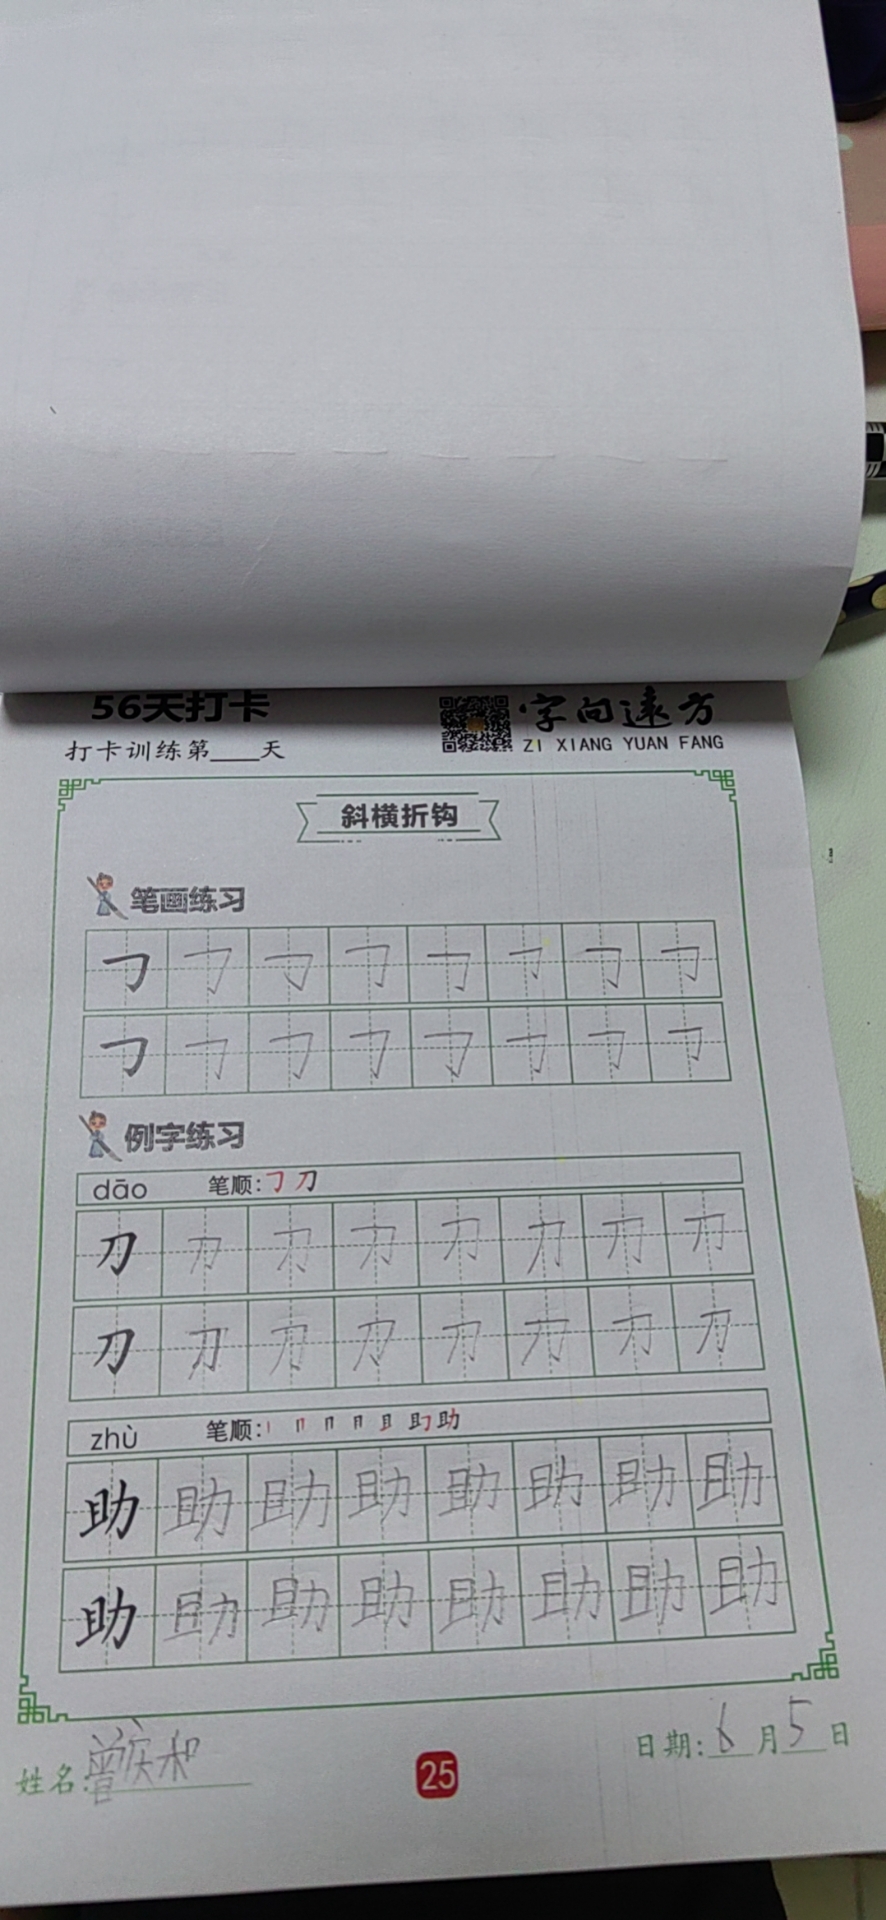 56天打卡
字向远方
打卡训练第____天
ZI XIANG YUAN FANG
斜横折钩
笔画练习
㇆ ㇆ ㇆ ㇆ ㇆ ㇆ ㇆ ㇆
㇆ ㇆ ㇆ ㇆ ㇆ ㇆ ㇆ ㇆
例字练习
dāo 笔顺:㇆ 刀
刀 刀 刀 刀 刀 刀 刀 刀
刀 刀 刀 刀 刀 刀 刀 刀
zhù 笔顺: 助
助 助 助 助 助 助 助 助
助 助 助 助 助 助 助 助
姓名:曾庆和
25
日期:6月5日